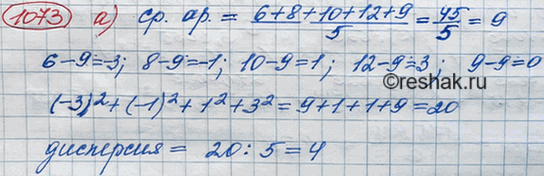 1073 а) ср. ар. = (6+8+10+12+9)/5 = 45/5 = 9
6-9=-3; 8-9=-1; 10-9=1; 12-9=3; 9-9=0
(-3)²+(-1)²+1²+3²=9+1+1+9=20
©reshak.ru
дисперсия = 20:5=4